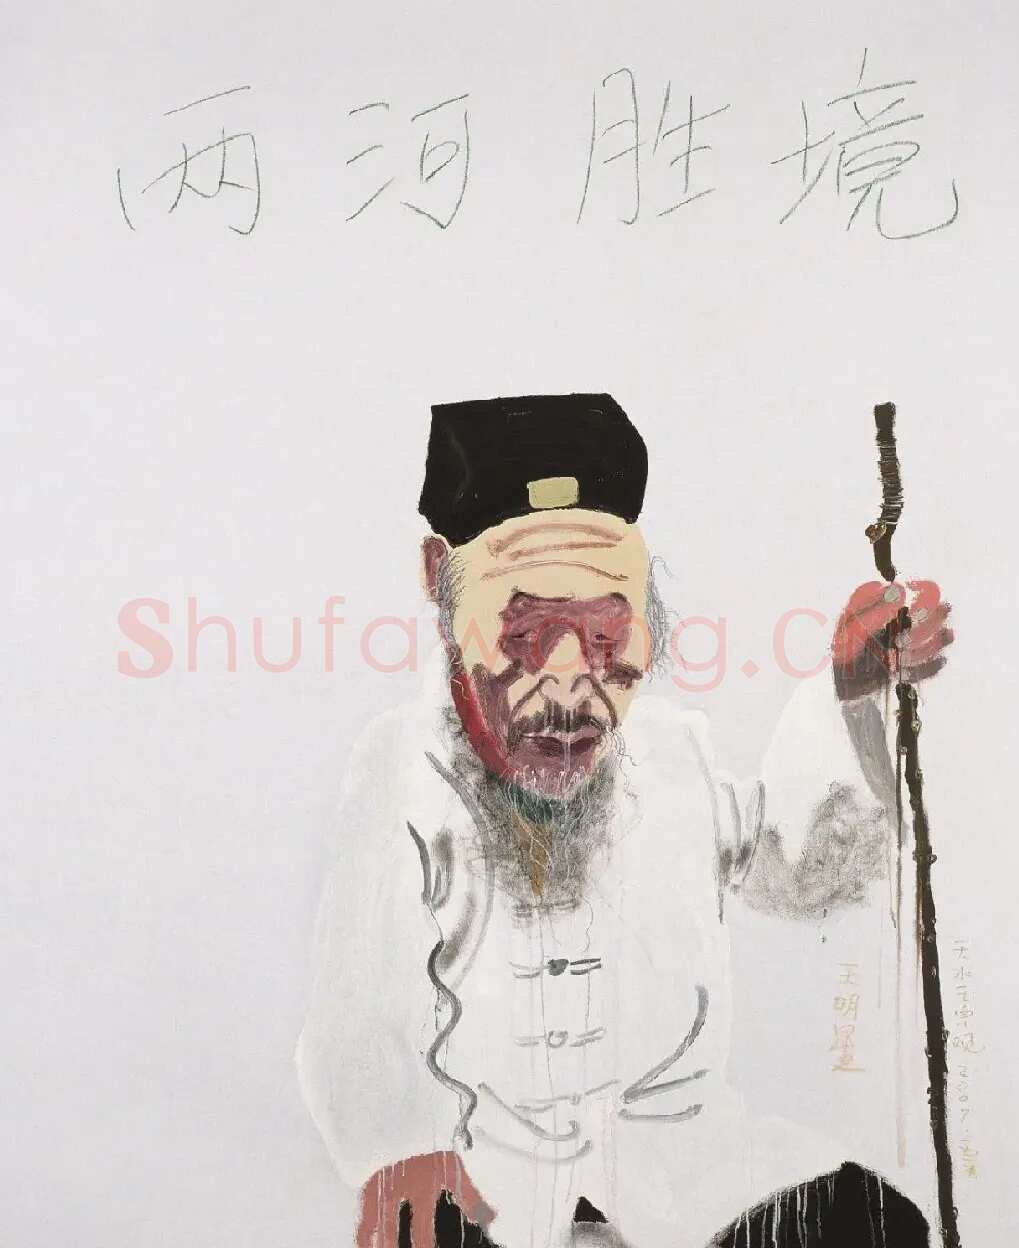 两河胜境
Shufawang.CN
王明
天水王
2007.